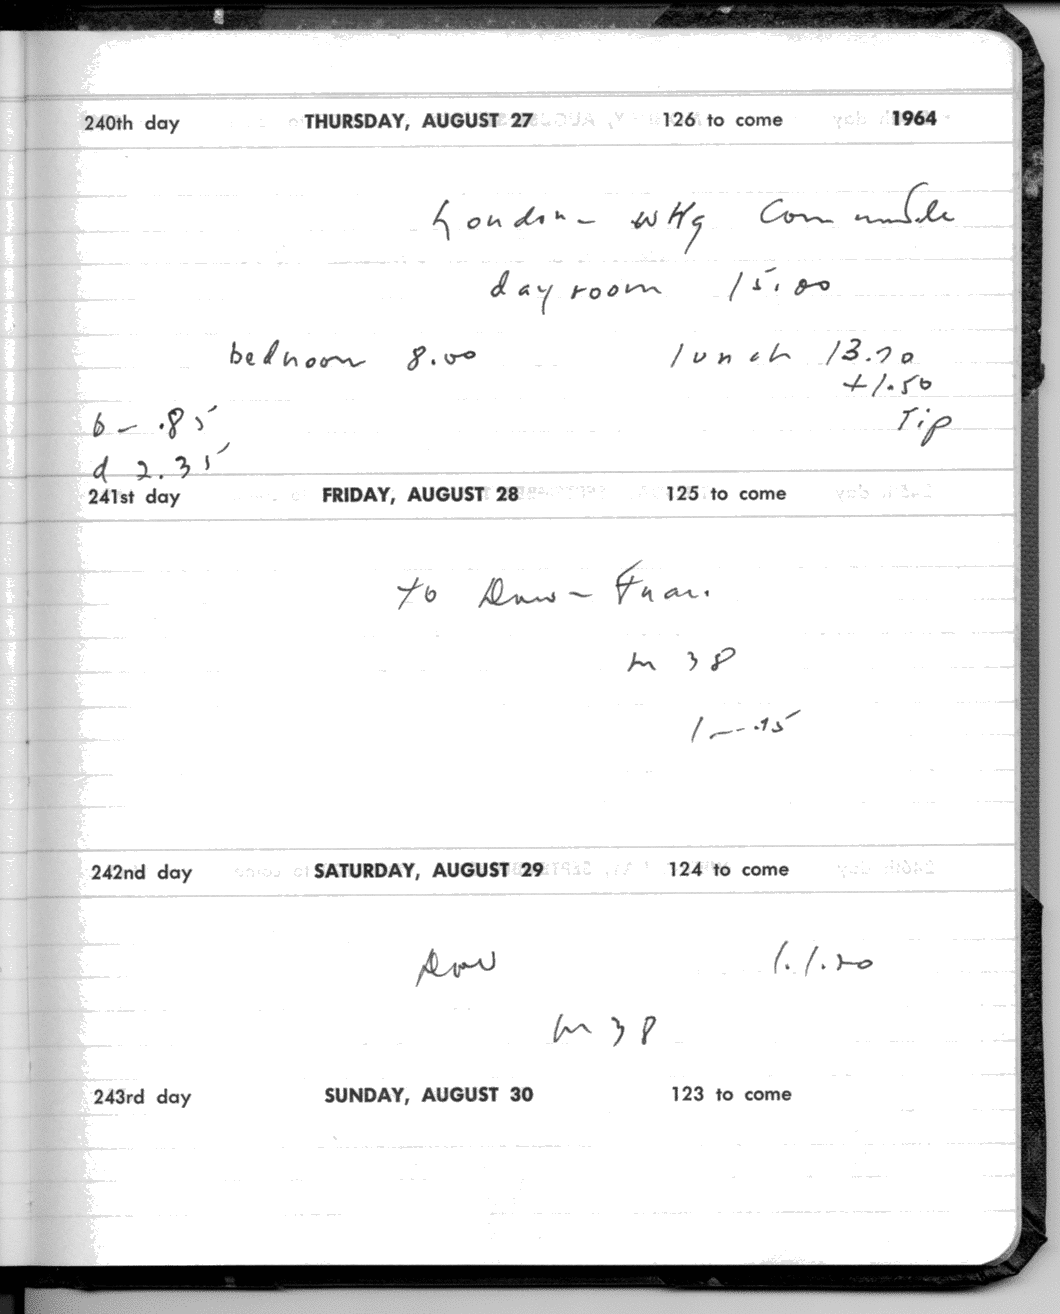 240th day THURSDAY, AUGUST 27 126 to come 1964
London - wkg Committee
day room 15.00
bedroom 8.00 lunch 13.70
+1.50
Tip
b - .85
d 2.35
241st day FRIDAY, AUGUST 28 125 to come
to Dow - Fran.
m 38
1 -- .15
242nd day SATURDAY, AUGUST 29 124 to come
Dow 1.1.20
m 38
243rd day SUNDAY, AUGUST 30 123 to come